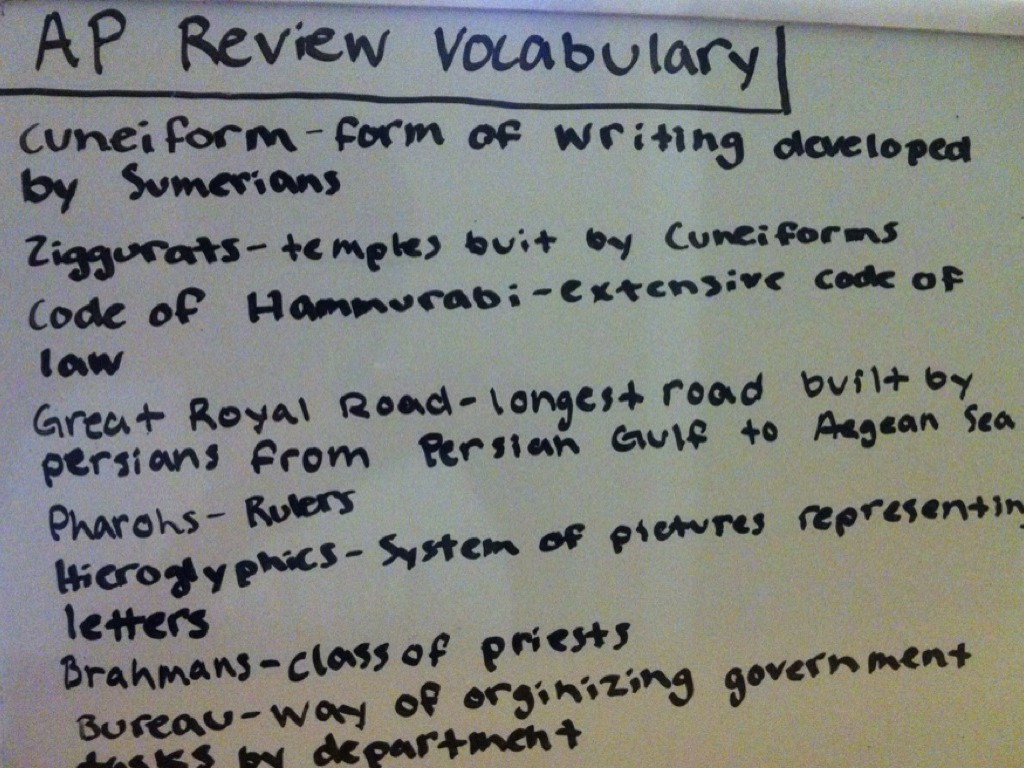 AP Review Vocabulary
Cuneiform - form of writing developed
by Sumerians
Ziggurats - temples buit by Cuneiforms
Code of Hammurabi - extensive code of
law
Great Royal Road - longest road built by
persians from Persian Gulf to Aegean Sea
Pharohs - Rulers
Hieroglyphics - System of pictures representin
letters
Brahmans - class of priests
Bureau - way of orginizing government
tasks by department